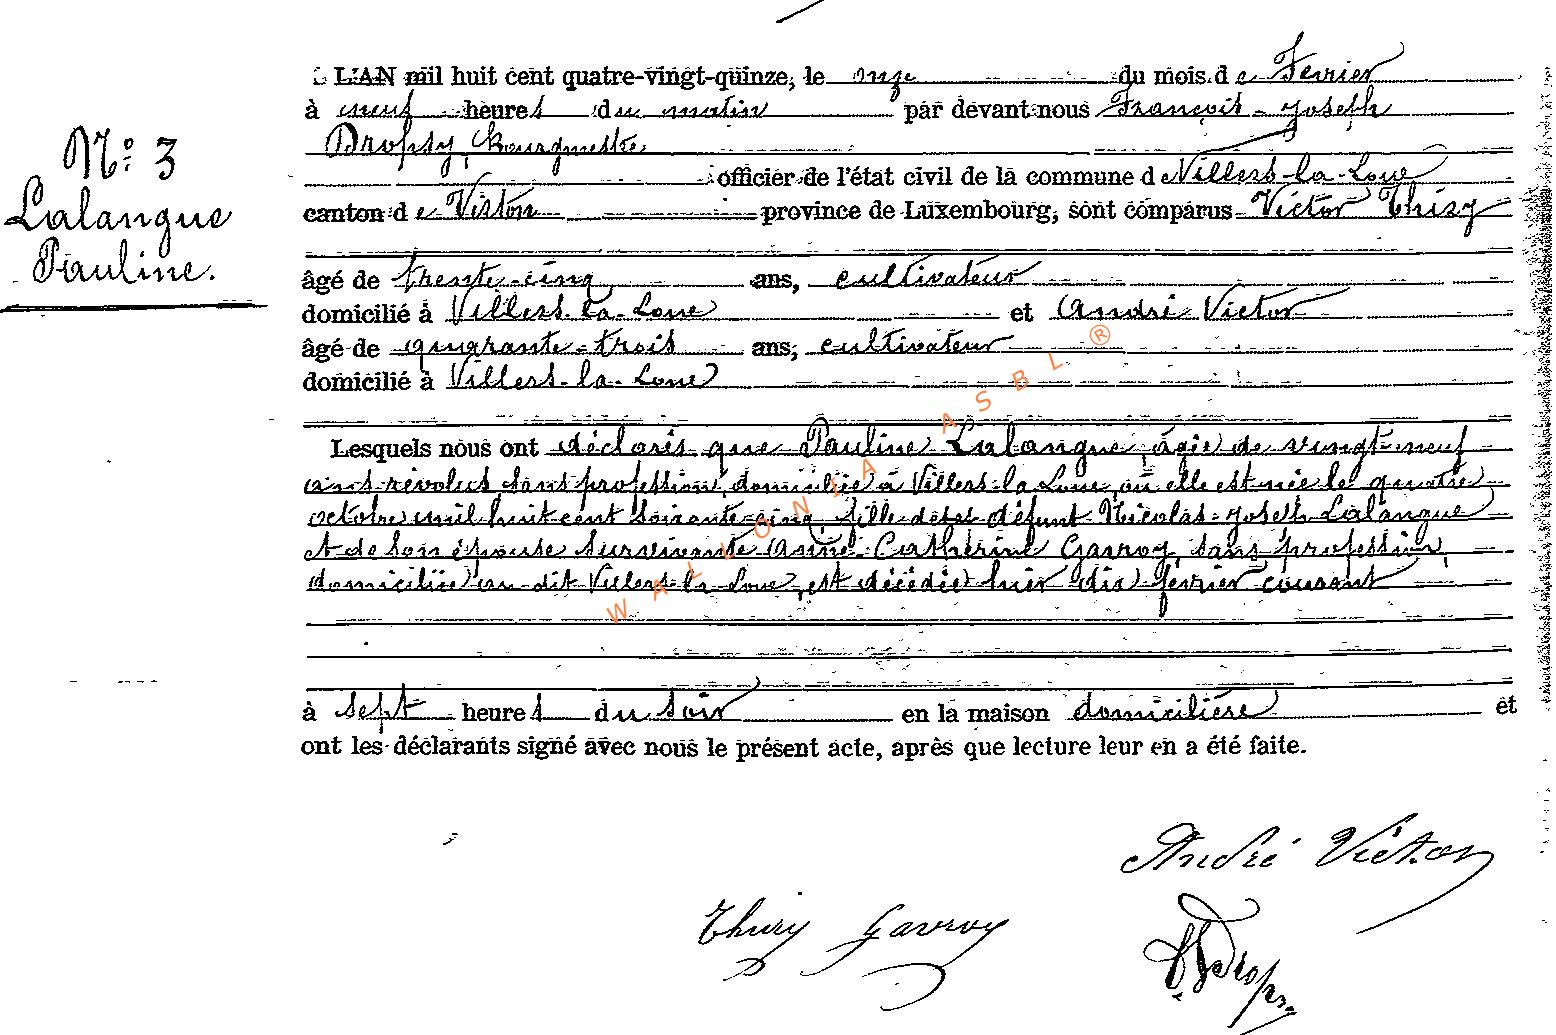 N° 3
Lalangue
Pauline.
L'AN mil huit cent quatre-vingt-quinze, le onze du mois de Fevrier
à neuf heures du matin par devant nous François-Joseph
Dropsy, Bourgmestre
officier de l'état civil de la commune de Villers-la-Loue
canton de Virton province de Luxembourg, sont comparus Victor Thiry
âgé de trente-cinq ans, cultivateur
domicilié à Villers-la-Loue et André Victor
âgé de quarante-trois ans, cultivateur
domicilié à Villers-la-Loue
Lesquels nous ont déclarés que Pauline Lalangue, âgée de vingt-neuf
ans révolus sans profession, domiciliée à Villers-la-Loue, où elle est née le quatre
octobre mil huit cent soixante-cinq, fille de défunt Nicolas-Joseph Lalangue
et de son épouse survivante Anne Catherine Gavroy, sans profession,
domiciliée au dit Villers-la-Loue, est décédée hier dix février courant
à sept heures du soir en la maison domicilière et
ont les déclarants signé avec nous le présent acte, après que lecture leur en a été faite.
WALLONIA ASBL ®
André Victor
Thiry Gavroy
Dropsy